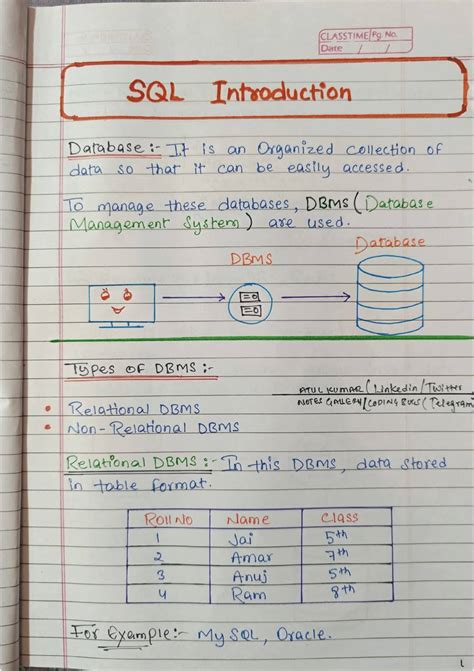 CLASSTIME Pg. No.
Date / /
SQL Introduction
Database :- It is an Organized collection of
data so that it can be easily accessed.
To manage these databases, DBMS (Database
Management System) are used.
Database
DBMS
Types of DBMS :-
ATUL KUMAR (Linkedin/Twitter
NOTES GALLERY/CODING BUGS (Telegram)
• Relational DBMS
• Non-Relational DBMS
Relational DBMS :- In this DBMS, data stored
in table format.
Roll No Name Class
1 Jai 5th
2 Amar 7th
3 Anuj 5th
4 Ram 8th
For Example:- MySQL, Oracle.
1